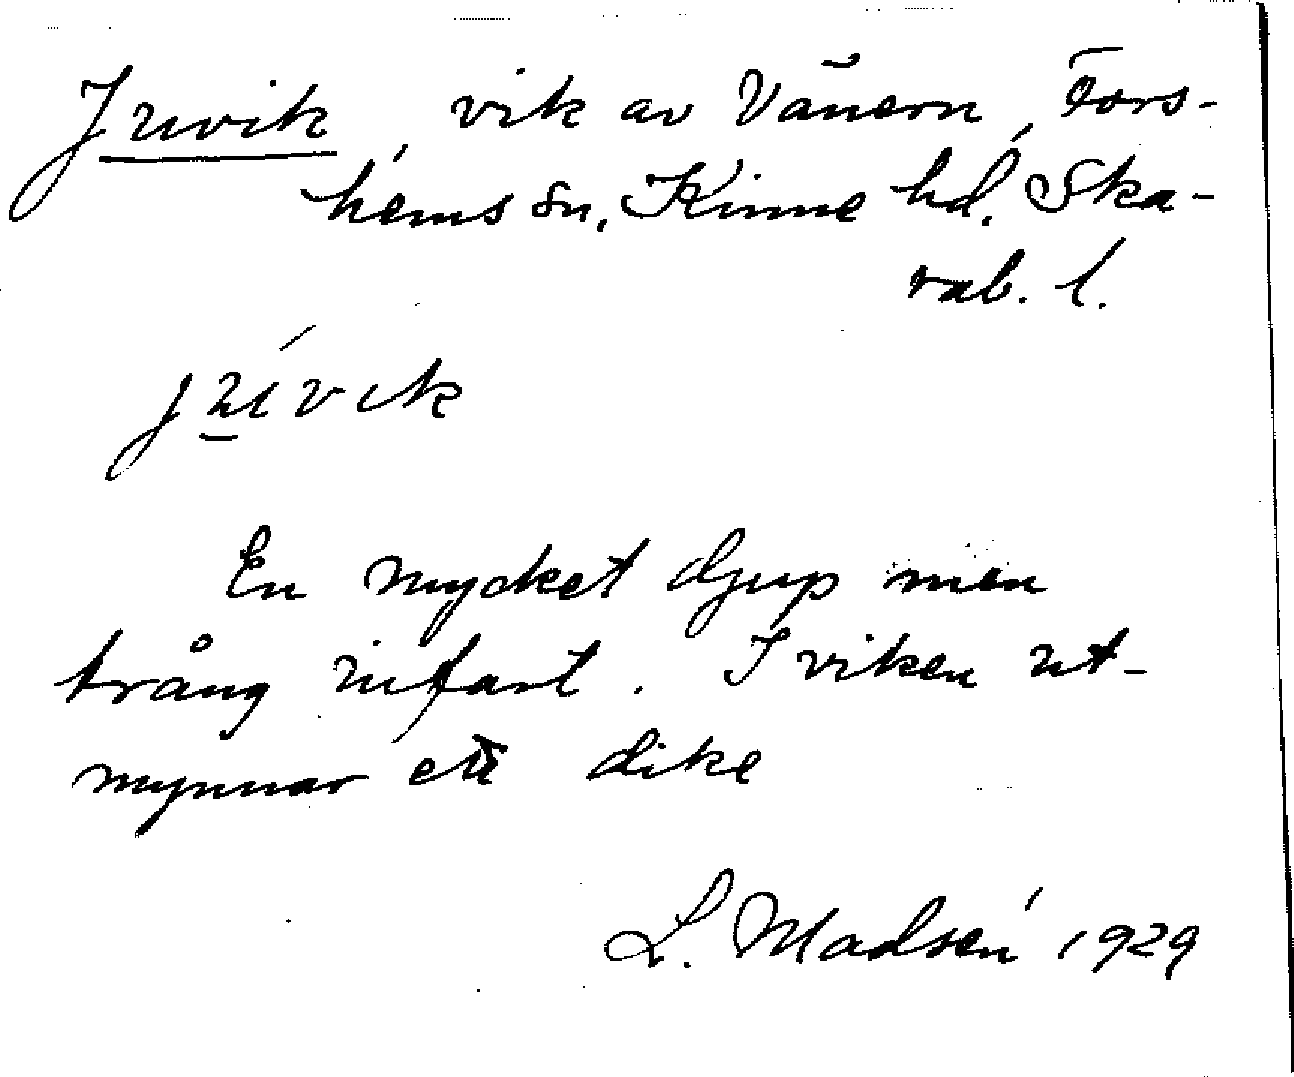 vik av Vänern, Fors-
hems sn, Kinne hd, Ska-
rab. l.
En mycket djup men
trång infart. I viken ut-
mynnar ett dike
L. Madsén 1929